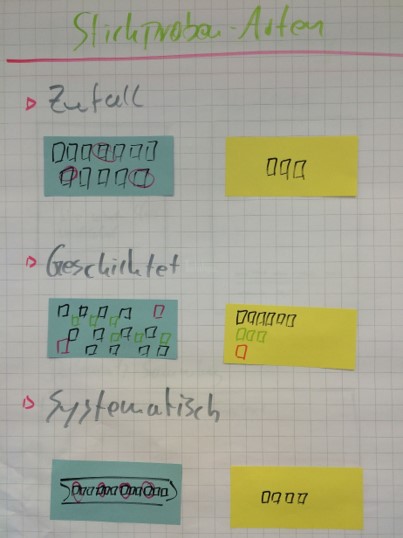 Stichproben-Arten
Zufall
Geschichtet
Systematisch